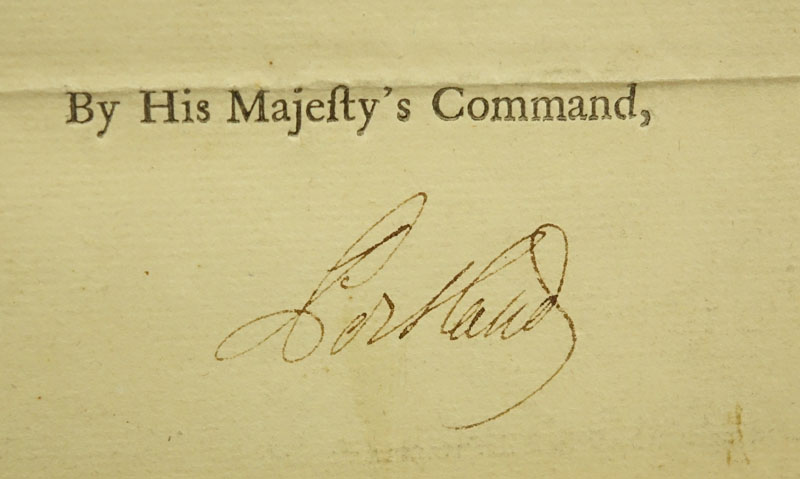 By His Majeſty's Command,
Portland